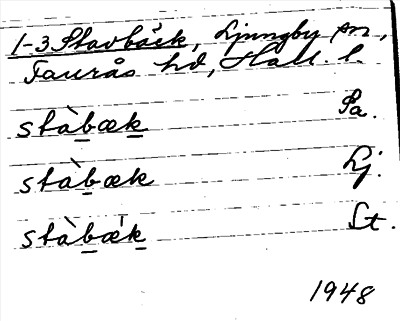 1-3 Stavbäck, Ljungby sn,
Faurås hd, Hall. l.
stàbæk Pa.
stàbæk Lj.
stàbæ'k St.
1948